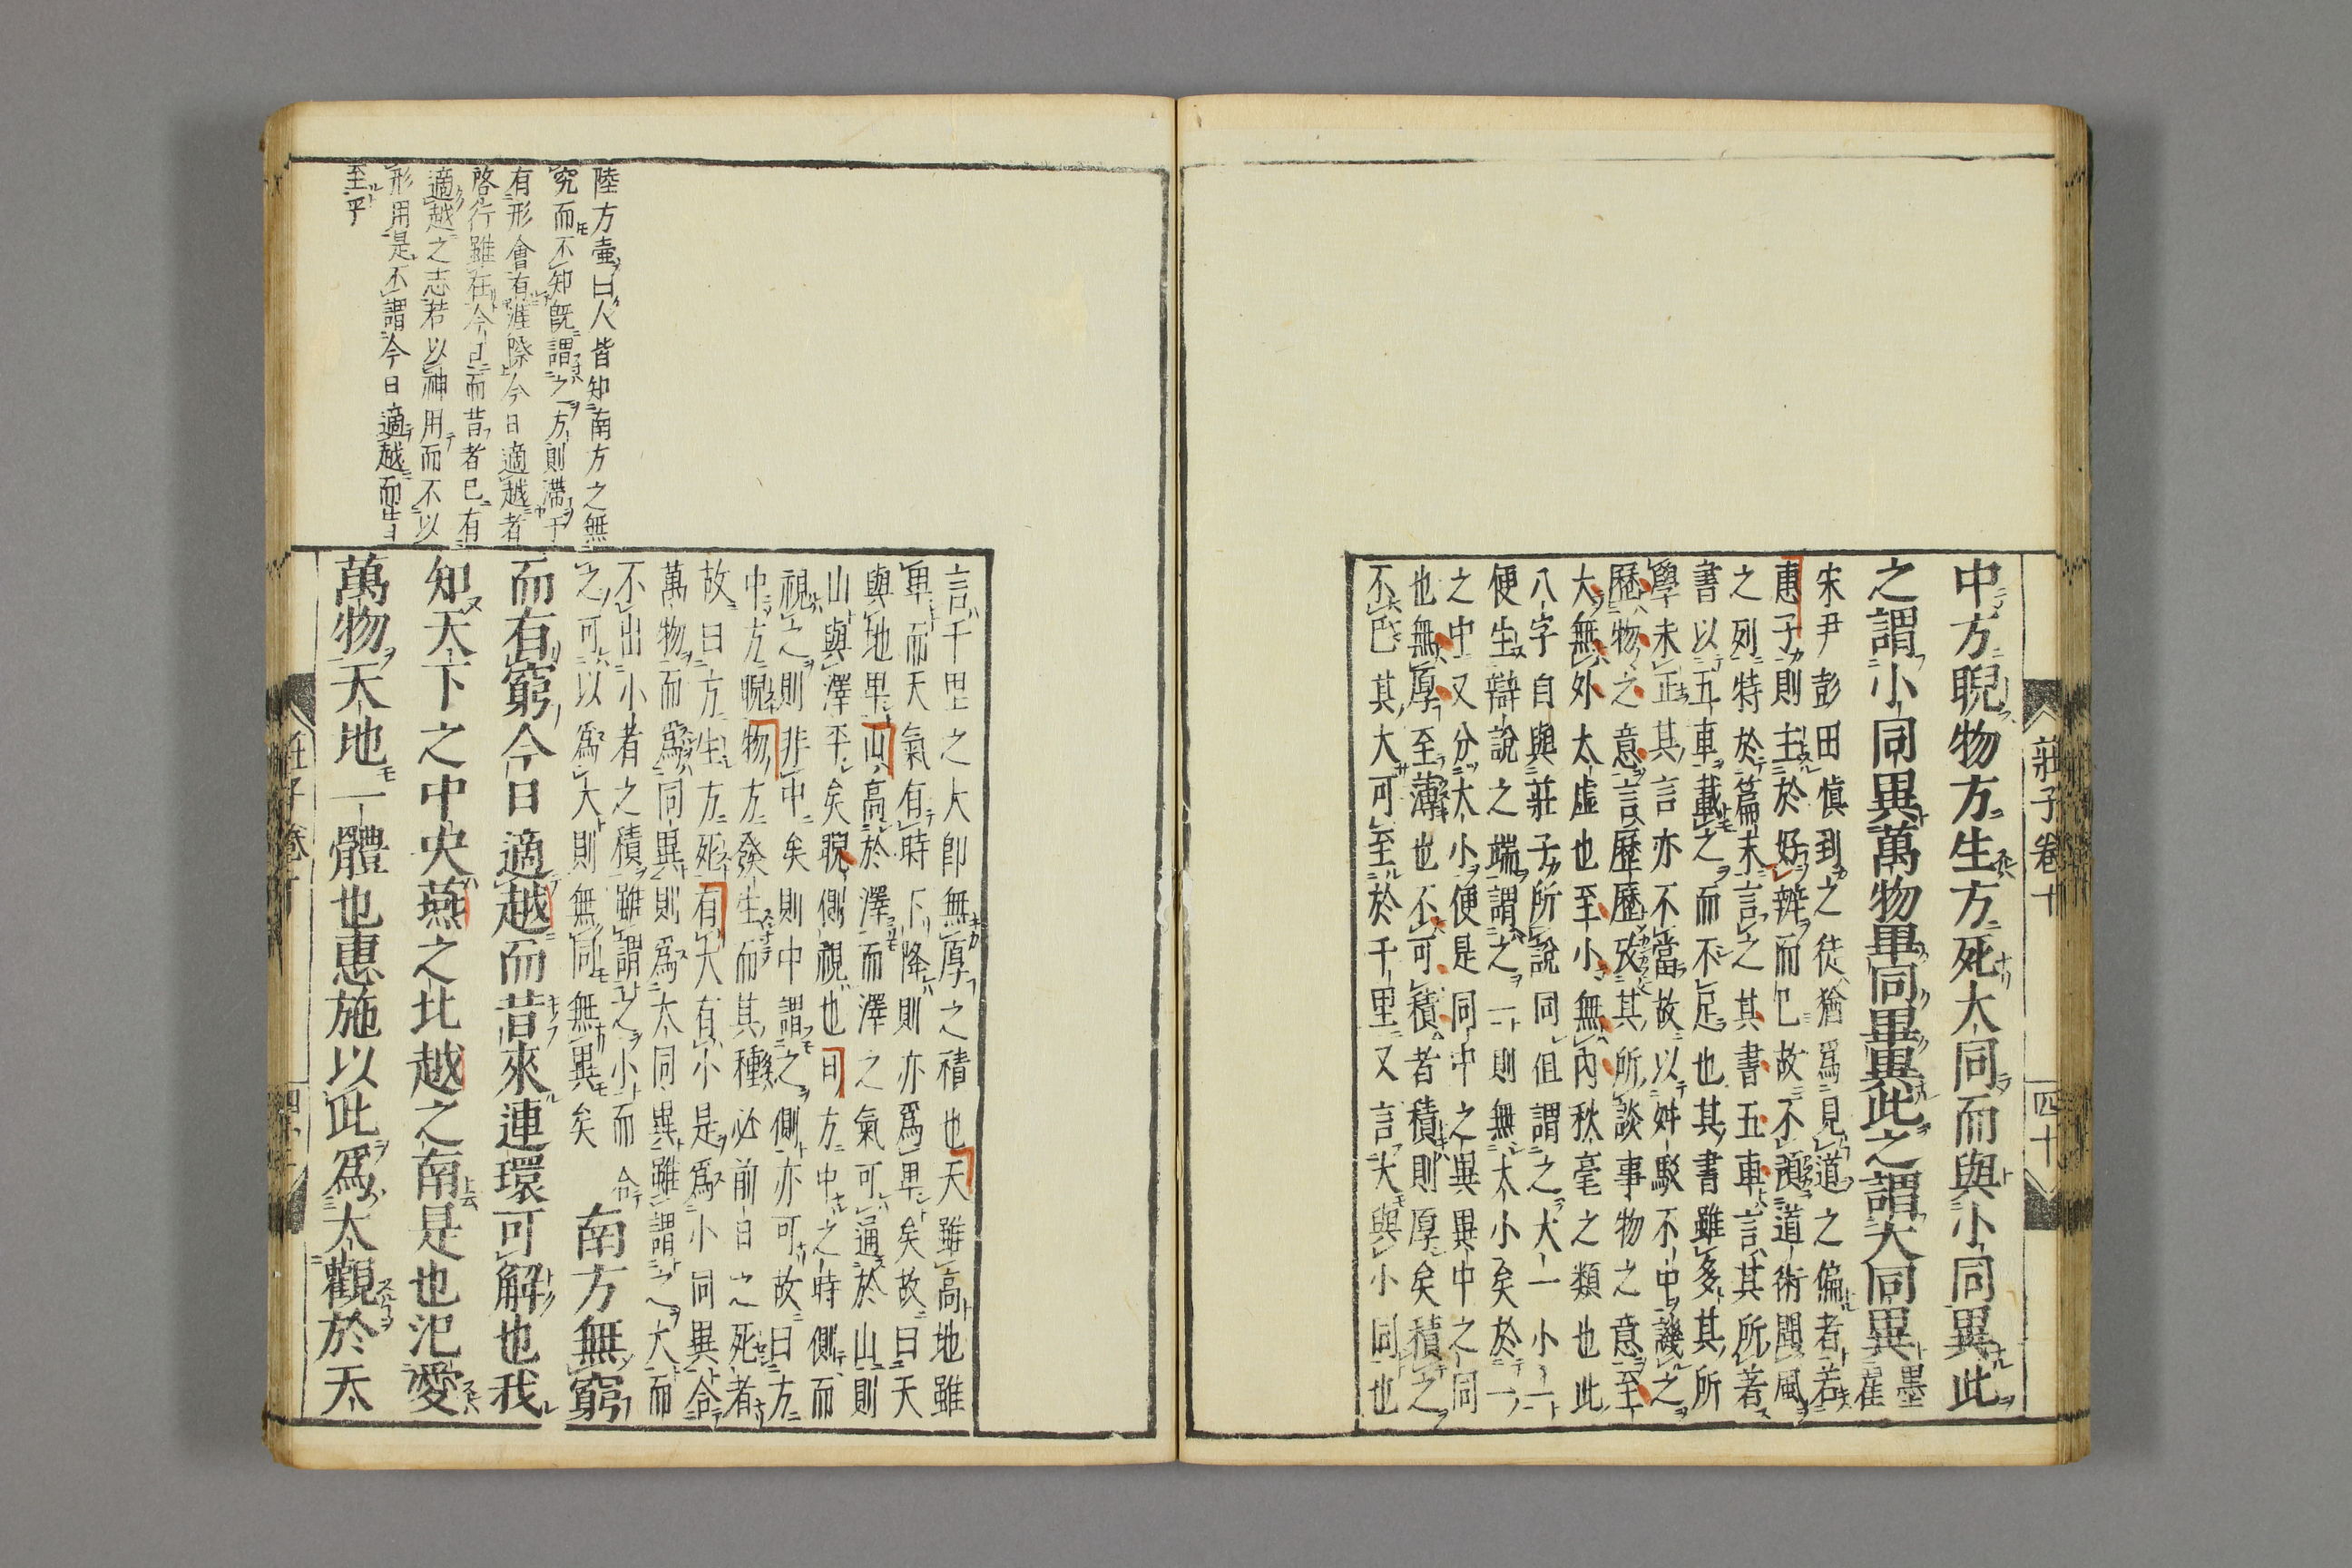 莊子卷十
四十
中方睨物方生方死大同而與小同異此
之謂小同異萬物畢同畢異此之謂大同異墨翟
宋尹彭田愼到之徒猶爲見道之偏者若
惠子則主於好辨而已故不預道術聞風
之列特於篇末言之其書五車言其所著
書以五車載之而不足也其書雖多其所
學未正其言亦不當故以舛駁不中譏之
歷物之意言歷歷攷其所談事物之意至
大無外太虛也至小無內秋毫之類也此
八字自與莊子所說同但謂之大一小一
便生辯說之端謂之一則無太小矣於一
之中又分大小便是同中之異異中之同
也無厚至薄也不可積者積則厚矣積之
不已其大可至於千里又言大與小同也
言千里之大卽無厚之積也天雖高地雖
卑而天氣有時下降則亦爲卑矣故曰天
與地卑山高於澤而澤之氣可通於山則
山與澤平矣睨側視也日方中之時側而
視之則非中矣則中謂之側亦可故曰方
中方睨物方發生而其種必前日之死者
故曰方生方死有大有小是爲小同異合
萬物而爲同異則爲大同異雖謂之大而
不出小者之積雖謂之小而合
之可以爲大則無同無異矣南方無窮
而有窮今日適越而昔來連環可解也我
知天下之中央燕之北越之南是也氾愛
萬物天地一體也惠施以此爲大觀於天
陸方壺曰人皆知南方之無
究而不知旣謂之方則滯于
有形會有涯際今日適越者
啓行雖在今日而昔者已有
適越之志若以神用而不以
形用是不謂今日適越而昔
至乎
莊子卷十